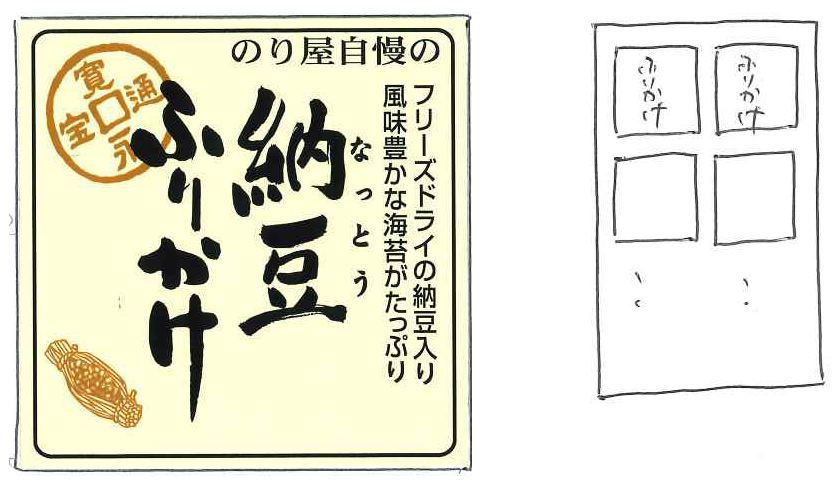 のり屋自慢の
フリーズドライの納豆入り
風味豊かな海苔がたっぷり
なっとう
納豆
ふりかけ
寛永通宝
ふりかけ
ふりかけ